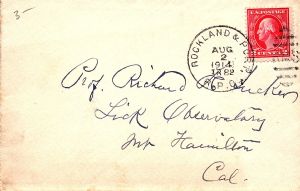 5-
ROCKLAND & PORT
AUG
2
1914
R.P.O.
U.S. POSTAGE
2 CENTS 2
Prof. Richard Tucker
Lick Observatory
Mt Hamilton
Cal.